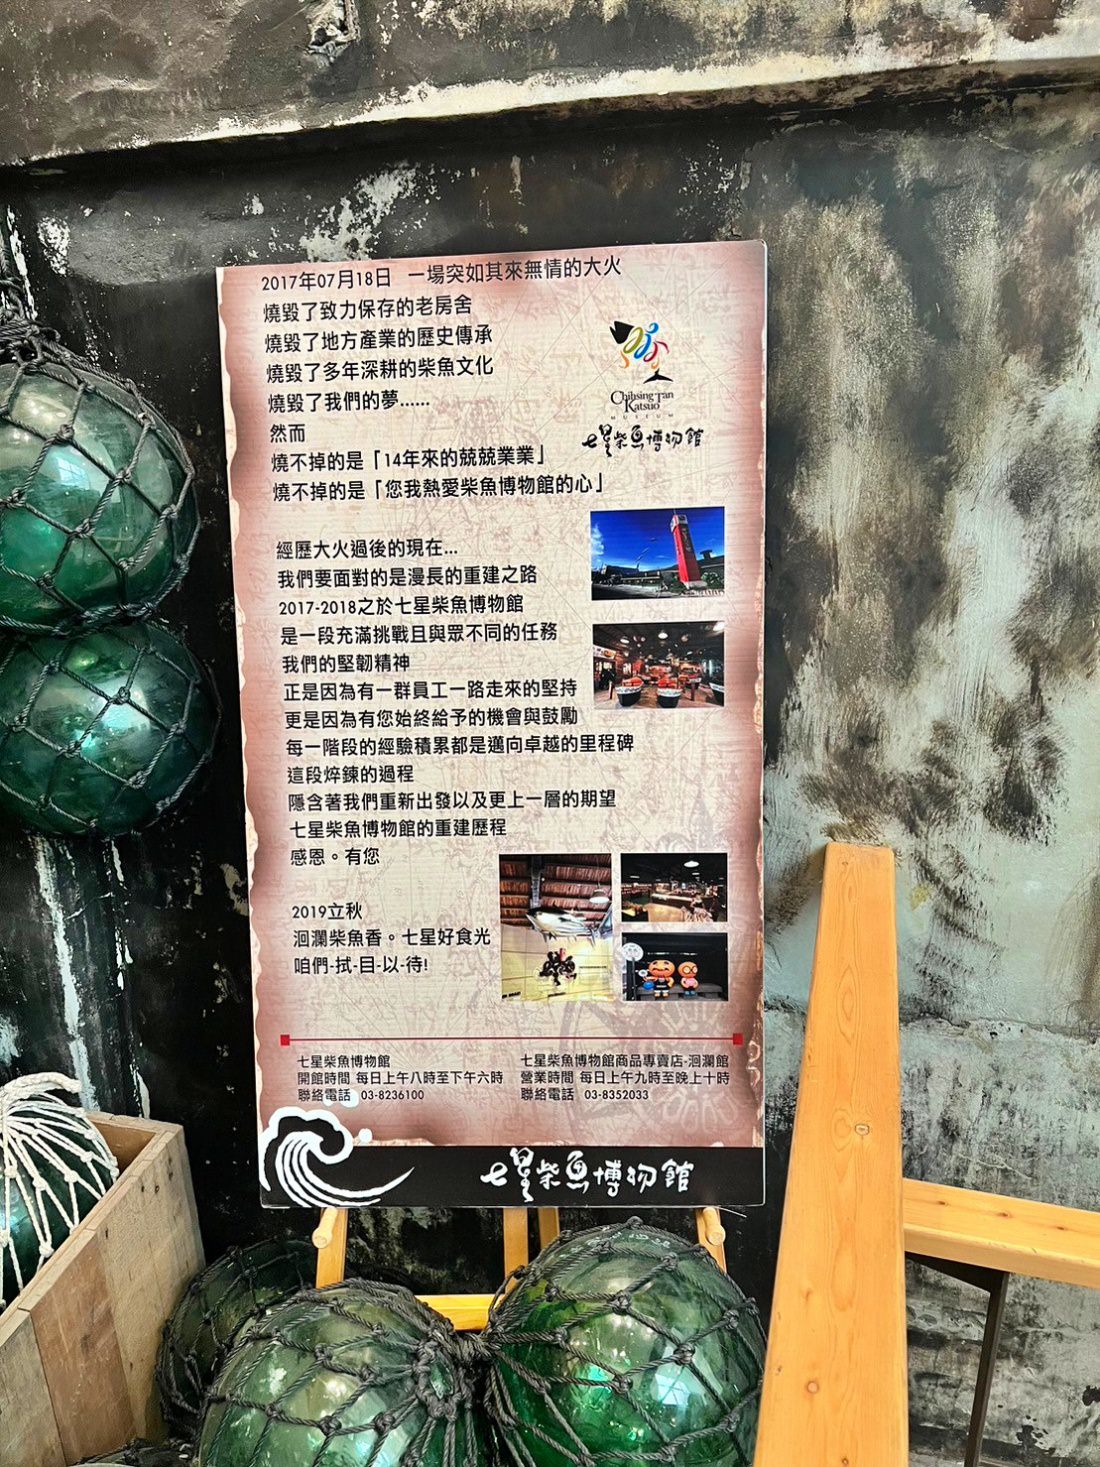 2017年07月18日 一場突如其來無情的大火
燒毀了致力保存的老房舍
燒毀了地方產業的歷史傳承
燒毀了多年深耕的柴魚文化
燒毀了我們的夢......
然而
燒不掉的是「14年來的兢兢業業」
燒不掉的是「您我熱愛柴魚博物館的心」
Chihsing Tan
Katsuo
MUSEUM
七星柴魚博物館
經歷大火過後的現在...
我們要面對的是漫長的重建之路
2017-2018之於七星柴魚博物館
是一段充滿挑戰且與眾不同的任務
我們的堅韌精神
正是因為有一群員工一路走來的堅持
更是因為有您始終給予的機會與鼓勵
每一階段的經驗積累都是邁向卓越的里程碑
這段焠鍊的過程
隱含著我們重新出發以及更上一層的期望
七星柴魚博物館的重建歷程
感恩。有您
2019立秋
洄瀾柴魚香。七星好食光
咱們-拭-目-以-待!
七星柴魚博物館
開館時間 每日上午八時至下午六時
聯絡電話 03-8236100
七星柴魚博物館商品專賣店-洄瀾館
營業時間 每日上午九時至晚上十時
聯絡電話 03-8352033
七星柴魚博物館